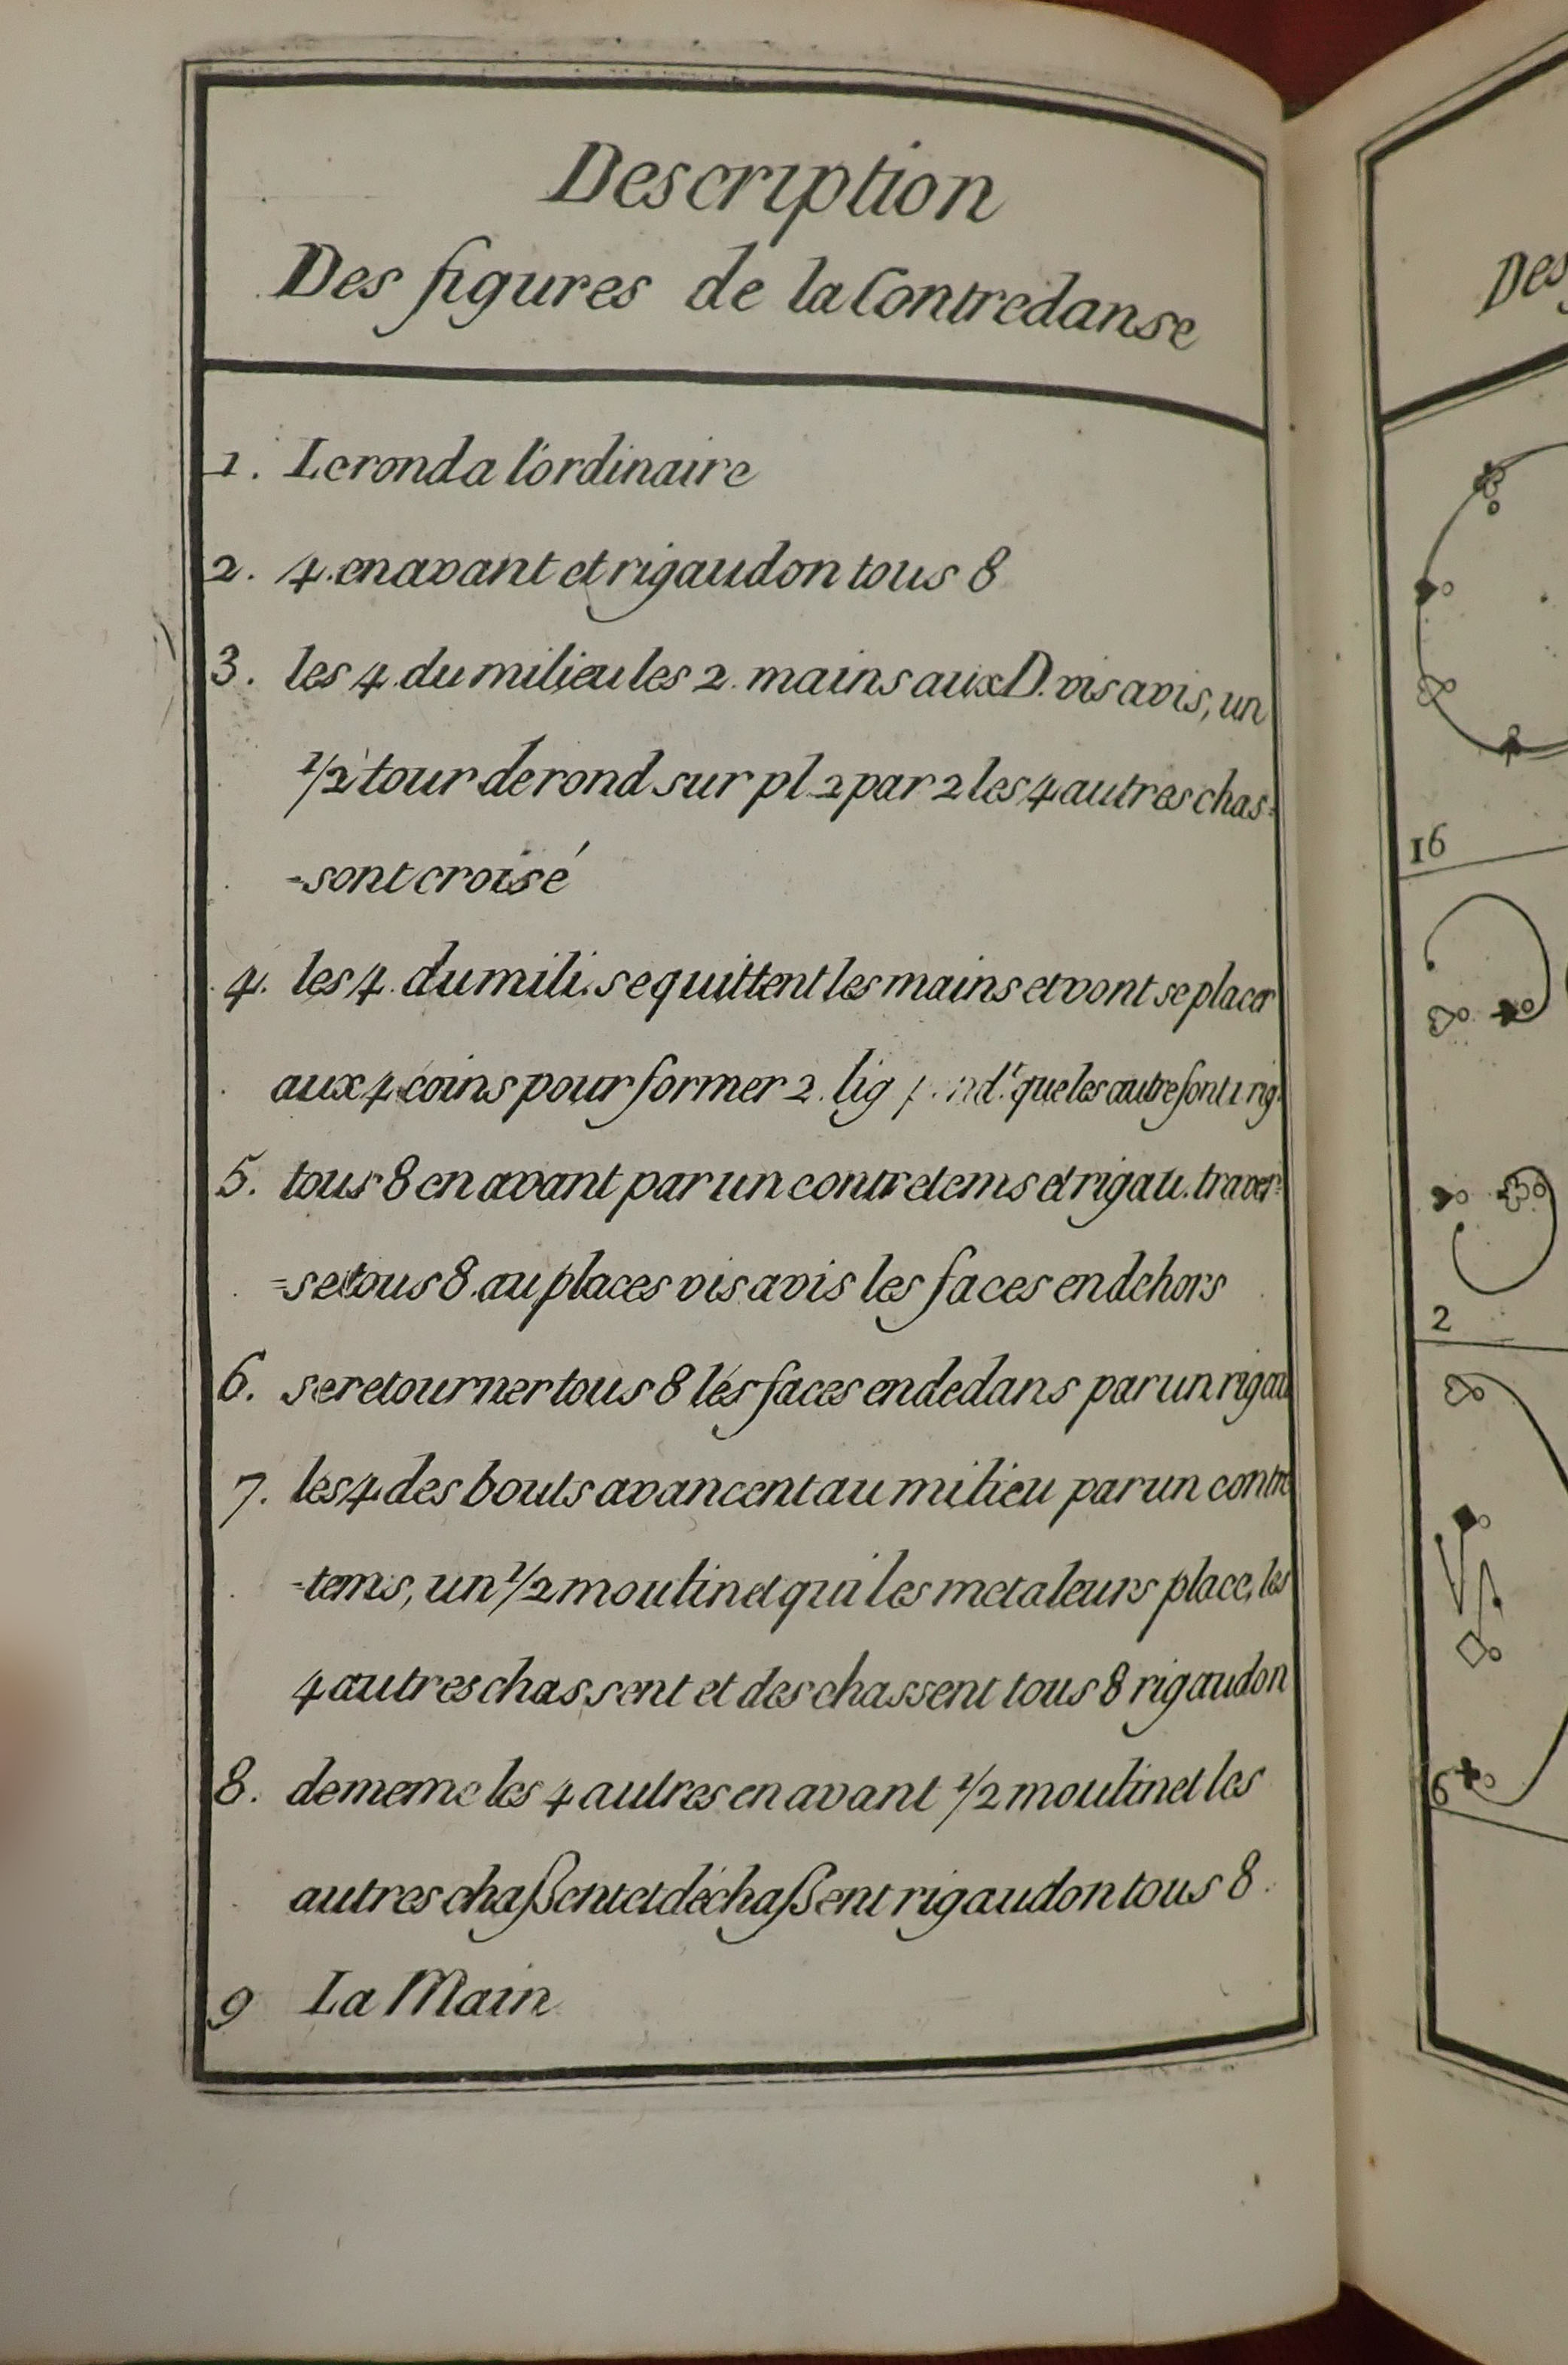 Description
Des figures de la Contredanse
1. Le rond a l'ordinaire
2. 4. en avant et rigaudon tous 8
3. les 4. du milieu les 2. mains aux D. vis avis, un
1/2 tour de rond sur pl 2 par 2 les 4 autres chas=
=sont croisé
4. les 4. du mili. se quittent les mains et vont se placer
aux 4 coins pour former 2. lig que les autre font 1 rig.
5. tous 8 en avant par un contretems et rigau. traver=
=se tous 8. au places vis avis les faces en dehors
6. se retourner tous 8 les faces en dedans par un rigau
7. les 4 des bouts avancent au milieu par un contre
=tems, un 1/2 moulinet qui les met a leurs place, les
4 autres chassent et deschassent tous 8 rigaudon
8. de meme les 4 autres en avant 1/2 moulinet les
autres chaßent et déchaßent rigaudon tous 8.
9 La Main
Des
16
2
6